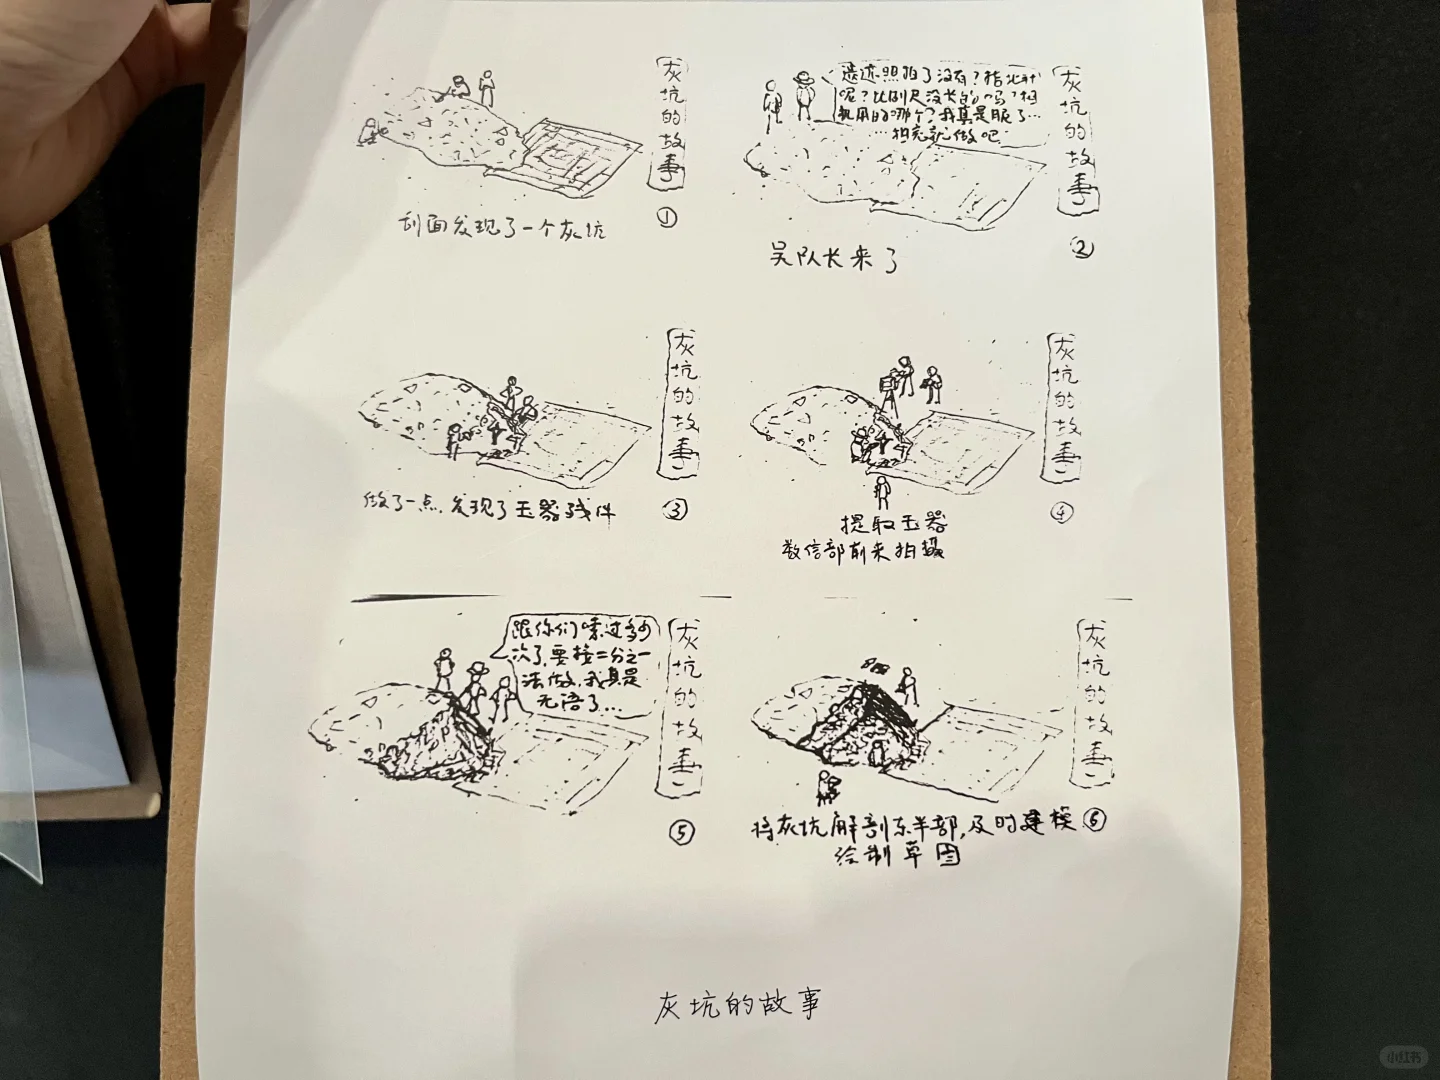 灰坑的故事
①
刮面发现了一个灰坑
遗迹照拍了没有？指北针
呢？比例尺没长的吗？相
机用的哪个？我真是服了…
…拍完就做吧
灰坑的故事
②
吴队长来了
灰坑的故事
③
做了一点,发现了玉器残件
灰坑的故事
④
提取玉器
数信部前来拍摄
跟你们唠过多少
次了,要按二分之一
法做,我真是
无语了…
灰坑的故事
⑤
灰坑的故事
⑥
将灰坑解剖东半部,及时建模
绘制草图
灰坑的故事
小红书